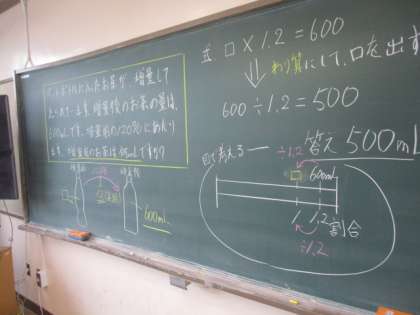 ペットボトル入りのお茶が、増量して
売られています。増量後のお茶の量は、
600mLです。増量前の120%にあたり
ます。増量前のお茶は何mLですか?
式 □×1.2=600
わり算にして、□を出す
600÷1.2=500
答え 500mL
図で考える
÷1.2
□ 600mL
1 1.2 割合
÷1.2
増量前
増量後
600mL